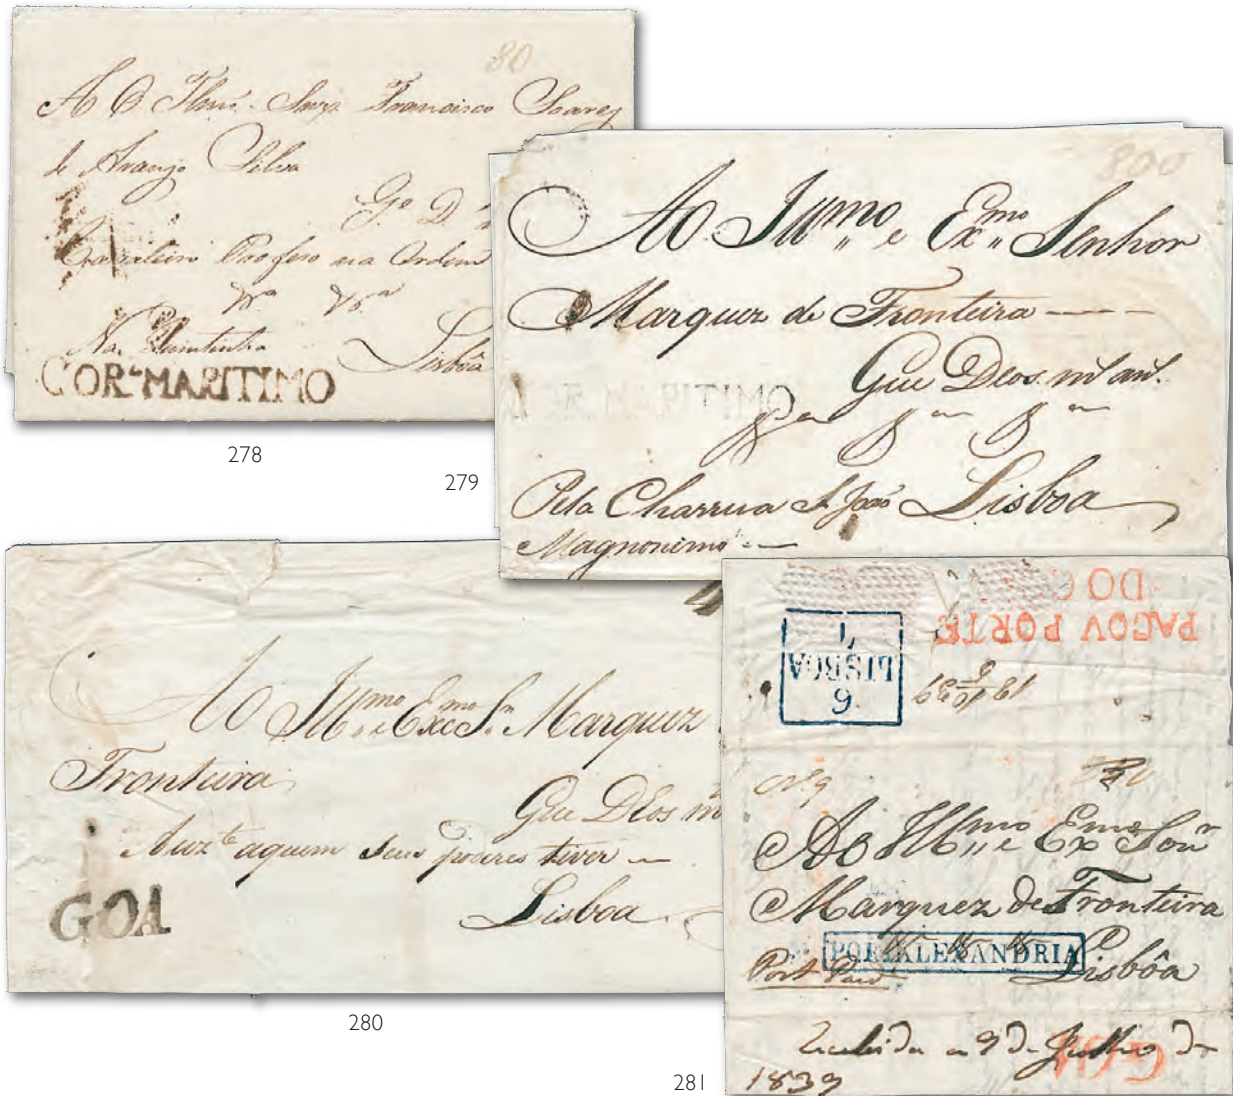 80
Francisco Soares
de Araujo Silva
Professo na Ordem
Na
Lisbôa
COR.º MARITIMO
278
800
Ao Illmo e Exmo Senhor
Marquez de Fronteira
Gue Deos ms ans.
COR. MARITIMO
Pela Charrua S. João Lisboa
Magnonimo
279
Ao Illmo e Exmo Sr. Marquez
Fronteira
Gue DEos m
aquem seus tiver
Lisboa
GOA
280
DO
PAGOV PORTE
1
LISBOA
6
Nº 9
Ao Illmo e Exmo Sonr
Marquez de Fronteira
POR ALEXANDRIA
Port Paid Lisbôa
GOA
9 de Julho de
1839
281